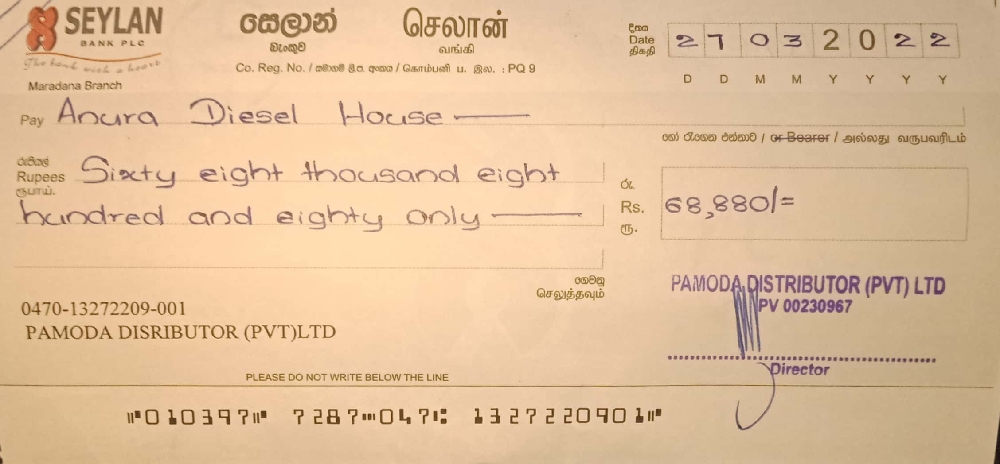 SEYLAN
BANK PLC
The bank with a heart
Maradana Branch
සෙලාන්
බැංකුව
செலான்
வங்கி
Co. Reg. No. / සමාගම් ලි.ප. අංකය / கொம்பனி ப. இல. : PQ 9
දිනය
Date
திகதி
27 03 2022
D D M M Y Y Y Y
Pay Anura Diesel House
හෝ රැගෙන එන්නාට / or Bearer / அல்லது வருபவரிடம்
රුපියල්
Rupees
ரூபாய்.
Sixty eight thousand eight
hundred and eighty only
රු.
Rs.
ரூ.
68,880/=
ගෙවනු
செலுத்தவும்
0470-13272209-001
PAMODA DISRIBUTOR (PVT)LTD
PAMODA DISTRIBUTOR (PVT) LTD
PV 00230967
Director
PLEASE DO NOT WRITE BELOW THE LINE
⑈010397⑈ 7287⑉047⑆ 1327220901⑈